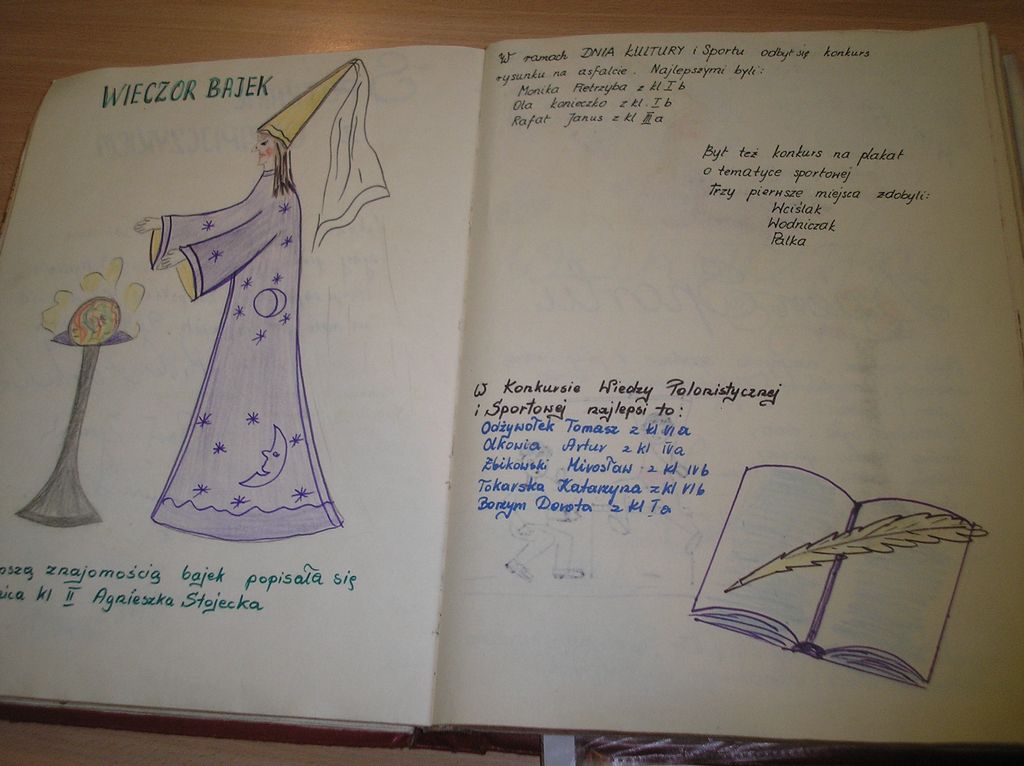 WIECZOR BAJEK
znajomością bajek popisała się
kl II Agnieszka Stojecka
W ramach DNIA KULTURY i Sportu odbył się konkurs
rysunku na asfalcie. Najlepszymi byli:
Monika Pietrzyba z kl I b
Ola konieczko z kl. I b
Rafał Janus z kl III a
Był też konkurs na plakat
o tematyce sportowej
Trzy pierwsze miejsca zdobyli:
Wciślak
Wodniczak
Palka
W Konkursie Wiedzy Polonistycznej
i Sportowej najlepsi to:
Odżywołek Tomasz z kl VI a
Olkowia Artur z kl IV a
Żbikowski Mirosław z kl IV b
Tokarska Katarzyna z kl VI b
Borzym Dorota z kl I a